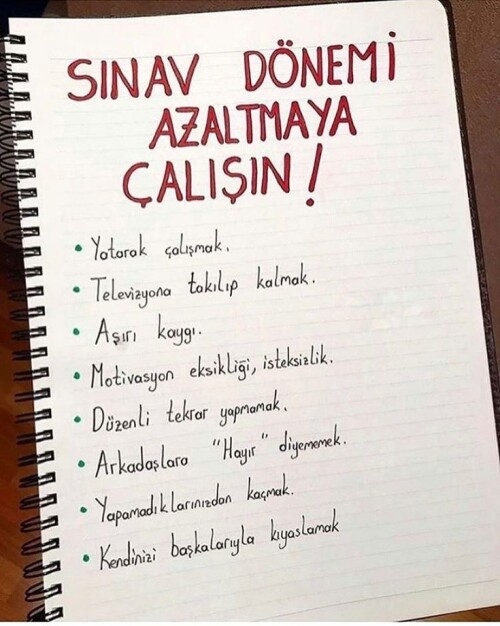 SINAV DÖNEMİ
AZALTMAYA
ÇALIŞIN!
• Yatarak çalışmak.
• Televizyona takılıp kalmak.
• Aşırı kaygı.
• Motivasyon eksikliği, isteksizlik.
• Düzenli tekrar yapmamak.
• Arkadaşlara "Hayır" diyememek.
• Yapamadıklarınızdan kaçmak.
• Kendinizi başkalarıyla kıyaslamak